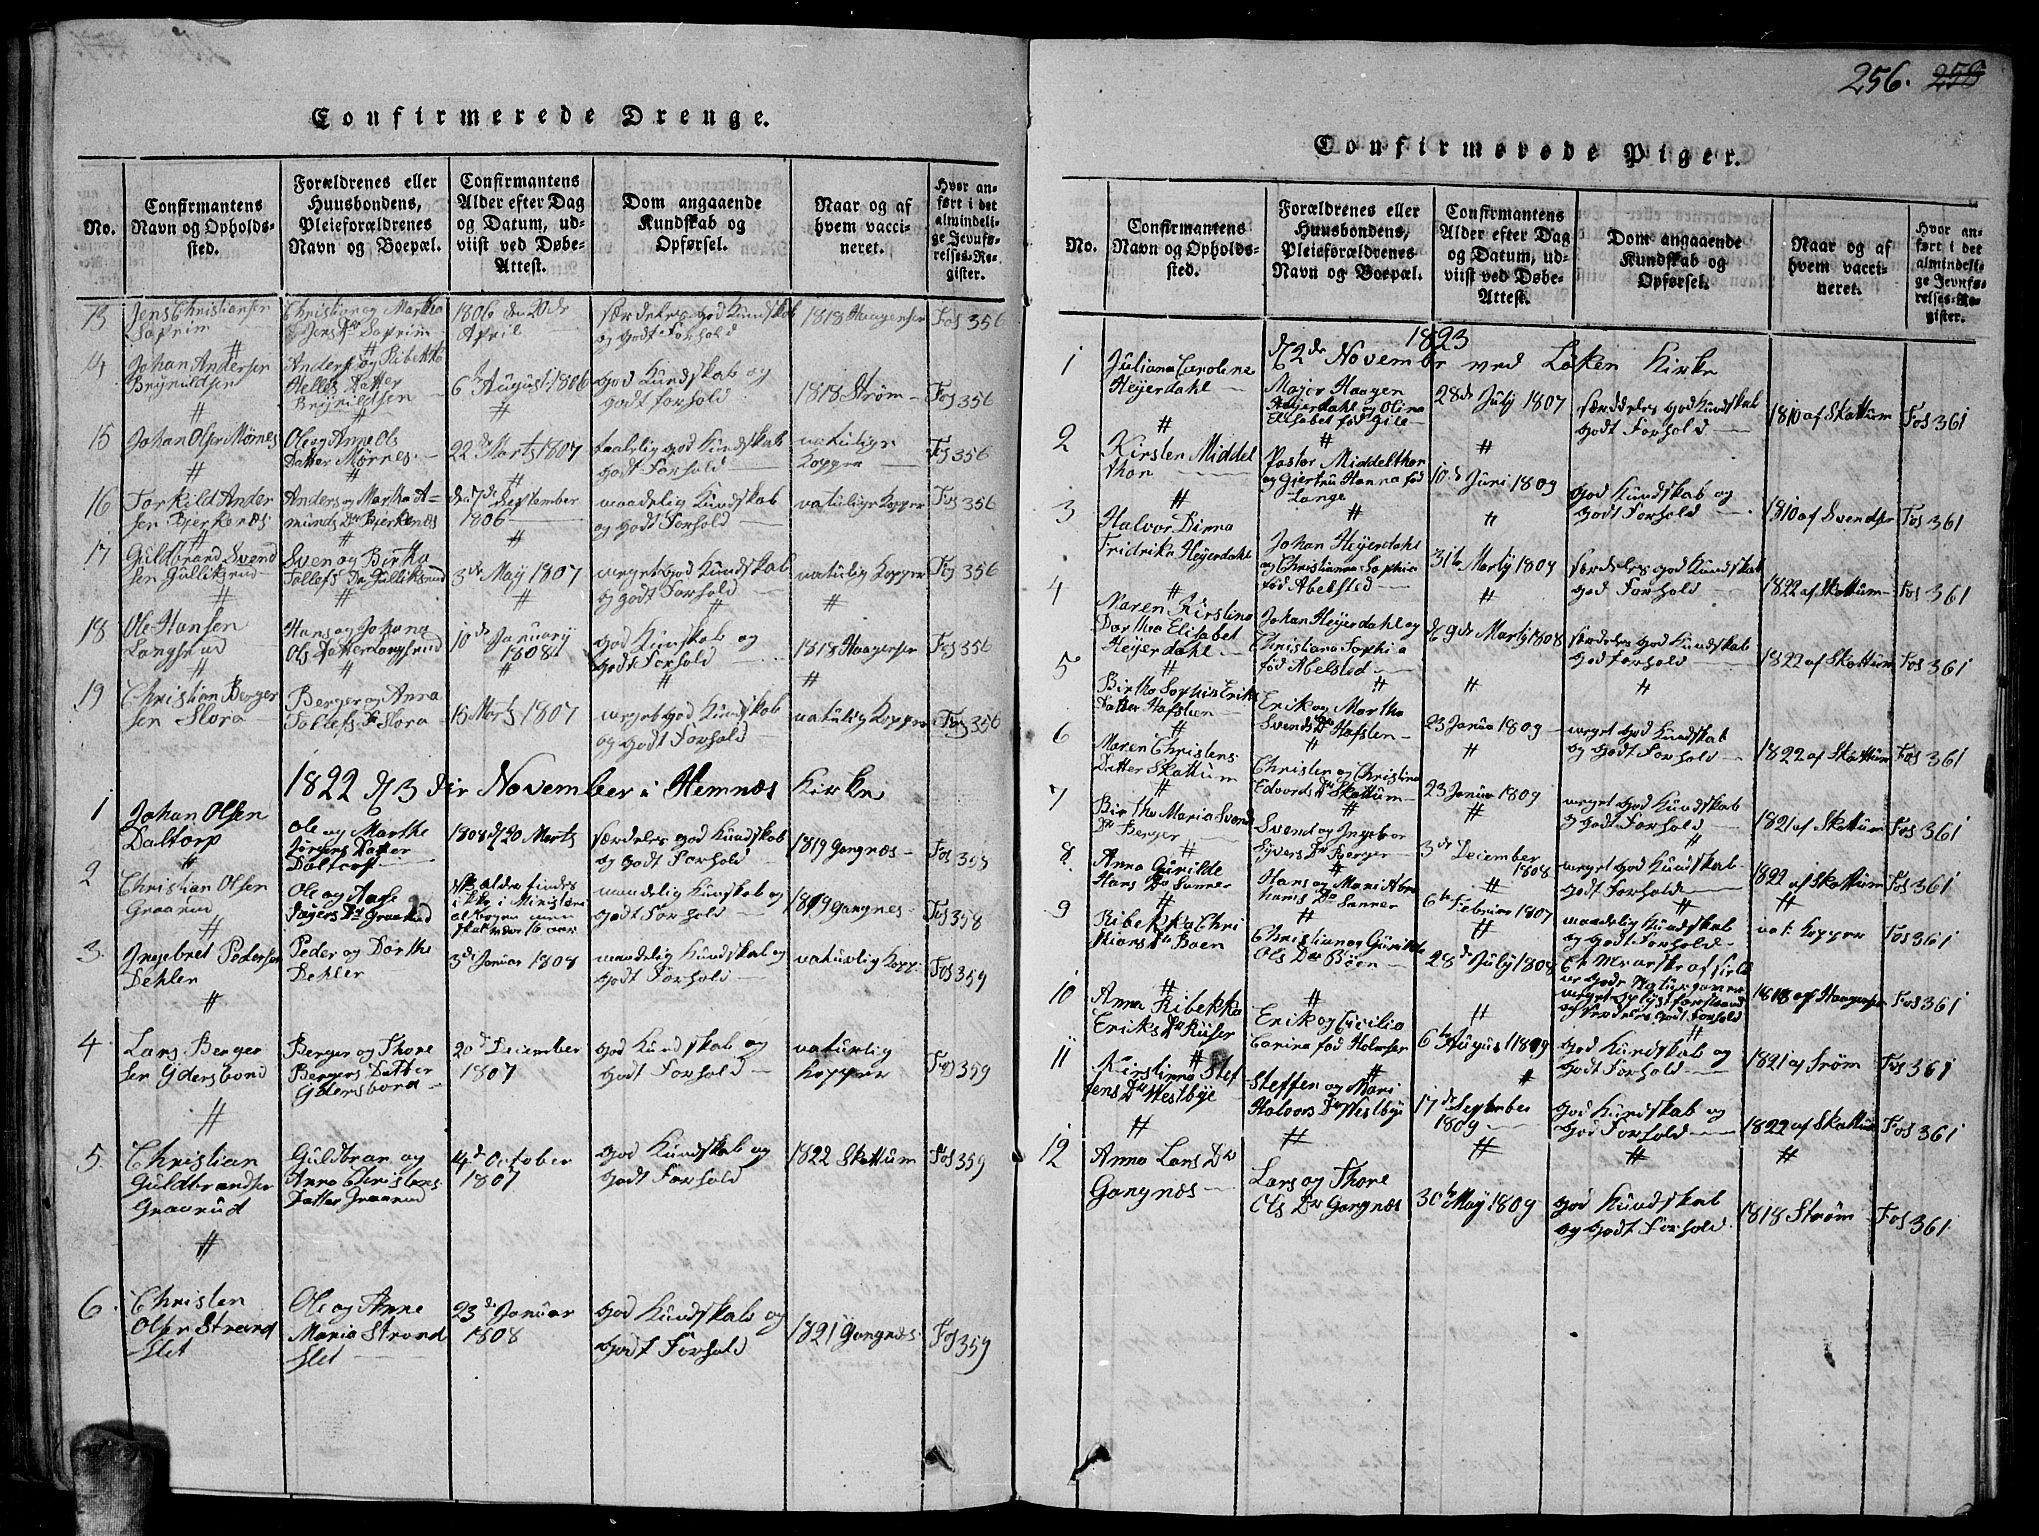 Confirmerede Drenge.
No.
Confirmantens
Navn og Opholds-
sted.
Forældrenes eller
Huusbondens,
Pleieforældrenes
Navn og Boepæl.
Confirmantens
Alder efter Dag
og Datum, ud-
viist ved Døbe-
Attest.
Dom angaaende
Kundskab og
Opførsel.
Naar og af
hvem vacci-
neret.
Hvor an-
ført i det
almindeli-
ge Jevnfø-
relses-Re-
gister.
13
Jens Christiansen
Soprim
Christian og Martha
Jens Dr Soprim
1806 den 20de
April
særdeles god Kundskab
og godt Forhold
1818 Haagensen
Fol 356
14
Johan Andersen
Brynildsen
Anders og Ribekka
Datter
Brynildsen
6th August 1806
god Kundskab og
godt forhold
1818 Strøm
Fol 356
15
Johan Olsen Mørnes
Ole og Anne Ols
Datter Mørnes
22de Marts 1807
taalelig god Kundskab
godt Forhold
naturlige
Kopper
Fol 356
16
Torkild Ander
sen Bjerkenes
Anders og Martha A-
munds Dr Bjerkenæs
den 7de September
1806
maadelig Kundskab
og godt Forhold
naturlige Kopper
Fol 356
17
Guldbrand Svend
sen Gulliksrud
Sven og Birthe
Tollefs Dr Gulliksrud
3de May 1807
meget god Kundskab
og godt Forhold
naturlig Kopper
Fol 356
18
Ole Hansen
Langsrud
Hans og Johana
Ols Datter Langsrud
10de January
1808
god Kundskab og
godt Forhold
1818 Haagensen
Fol 356
19
Christian Berger
sen Slora
Berger og Anna
Tollefs Dr Slora
15 Marts 1807
meget god Kundskab
og godt Forhold
naturlig Kopper
Fol 356
1822 d 3die November i Hemnæs Kirke
1
Johan Olsen
Daltorp
Ole og Marthe
Jørgens Datter
Daltorp
1808 d 20 Marts
særdeles god Kundskab
og godt Forhold
1819 Gangnæs
Fol 358
2
Christian Olsen
Graarud
Ole og Aase
Dr Graarud
alder findes
ikke i Ministeri
albogen men
skal være 16 aar
maadelig Kundskab og
godt Forhold
1819 Gangnes
Fol 358
3.
Ingebret Pedersen
Dehlen
Peder og Dorthe
Dehlen
3de Januar 1808
maadelig Kundskab og
godt Forhold
naturlig Kopp.
Fol 359
4.
Lars Berger
sen Ydersbond
Berger og Thore
Bergers Datter
Ydersbond
20de December
1807
god Kundskab og
godt Forhold
naturlig
Kopper
Fol 359
5.
Christian
Guldbrandsen
Graarud
Guldbran og
Anne Christens
Datter Graarud
4de October
1807
god Kundskab og
godt Forhold
1822 Skottum
Fol 359
6.
Christen
Olsen Strand
slet
Ole og Anne
Maria Strand
slet
23de Januar
1808
god Kundskab og
godt Forhold
1821 Gangnæs
Fol 359
256. 258
Confirmerede Piger.
No.
Confirmantens
Navn og Opholds-
sted.
Forældrenes eller
Huusbondens,
Pleieforældrenes
Navn og Boepæl.
Confirmantens
Alder efter Dag
og Datum, ud-
viist ved Døbe-
Attest.
Dom angaaende
Kundskab og
Opførsel.
Naar og af
hvem vacci-
neret.
Hvor an-
ført i det
almindeli-
ge Jevnfø-
relses-Re-
gister.
1823
d 2de November ved Løken Kirke
1
Juliana Caroline
Heyerdahl
Major Haagen
Heyerdahl og Olina
Elisabet fød
28de July 1807
særdeles god Kundskab
godt Forhold
1810 af Skottum
Fol 361
2
Kirsten Middel
thon
Pastor Middelthon
og Gjertru Hanna fød
Lange
10de Juni 1809
god Kundskab og
godt Forhold
1810 af Svendsen
Fol 361
3
Halvor Dirna
Fridrika Heyerdahl
Johan Heyerdahl
og Christiana Sophia
fød Abelsted
31te Marty 1807
særdeles god Kundskab
god Forhold
1822 af Skottum
Fol 361
4
Maren Kirstine
Dorthea Elisabet
Heyerdahl
Johan Heyerdahl og
Christiana Sophia
fød Abelsted
d 9de Marty 1808
særdeles god Kundskab
god Forhold
1822 af Skottum
Fol 361
5
Birthe Sophia Eriks
Datter Hafsten
Erik og Martha
Svends Dr Hafsten
23 Janua 1809
meget god Kundskab
og godt Forhold
1822 af Skottum
Fol 361
6
Maren Christens
Datter Skottum
Christen og Christina
Edvards Dr Skottum
23 Janua 1809
meget god Kundskab
og godt Forhold
1821 af Skottum
Fol 361
7
Birthe Maria Svends
Dr Berger
Svend og Ingebor
Syvers Dr Berger
3de December
1808
meget god Kundskab
godt Forhold
1822 af Skottum
Fol 361
8.
Anna Gunilde
Hans Dr Sanner
Hans og Mari Abra
hams Dr Sanner
6te Februar 1807
maadelig Kundskab
og godt Forhold
nat. Kopper
Fol 361
9
Ribekka Chri
stians Dr Boen
Christian og Gunilde
Ols Dr Böen
28de July 1808
naturgaver
meget oplyst forstand
og særdeles godt Forhold
1818 af Haagensen
Fol 361
10
Anne Ribekka
Eriks Dr Küser
Erik og Cicilia
Carina fød Holmsen
6te August 1809
god Kundskab og
godt Forhold
1821 af Strøm
Fol 361
11
Kirstinna Stef
fens Dr Westbye
Steffen og Mari
Halvors Dr Westbye
17de September
1809
god Kundskab og
god Forhold
1822 af Skottum
Fol 361
12
Anna Lars Dr
Gangnæs
Lars og Thore
Ols Dr Gangnæs
30te May 1809
god Kundskab
og godt Forhold
1818 Strøm
Fol 361